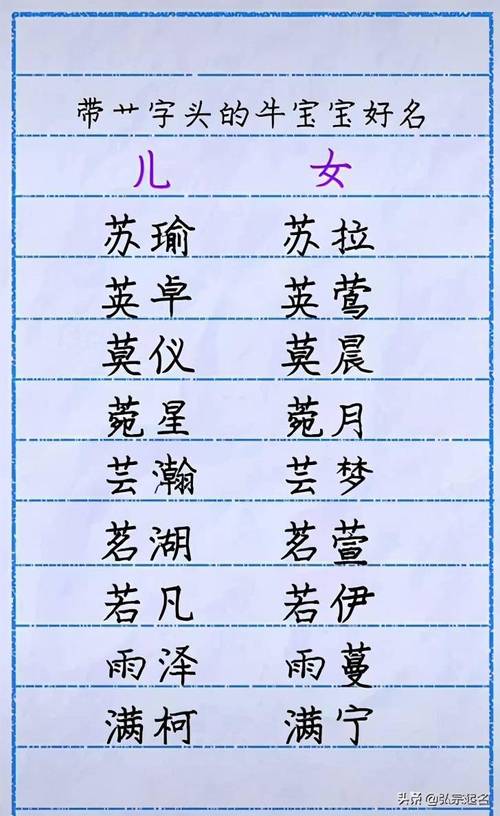 带艹字头的牛宝宝好名
儿 女
苏瑜 苏拉
英卓 英莺
莫仪 莫晨
菀星 菀月
芸瀚 芸梦
茗湖 茗萱
若凡 若伊
雨泽 雨蔓
满柯 满宁
头条 @弘宗起名